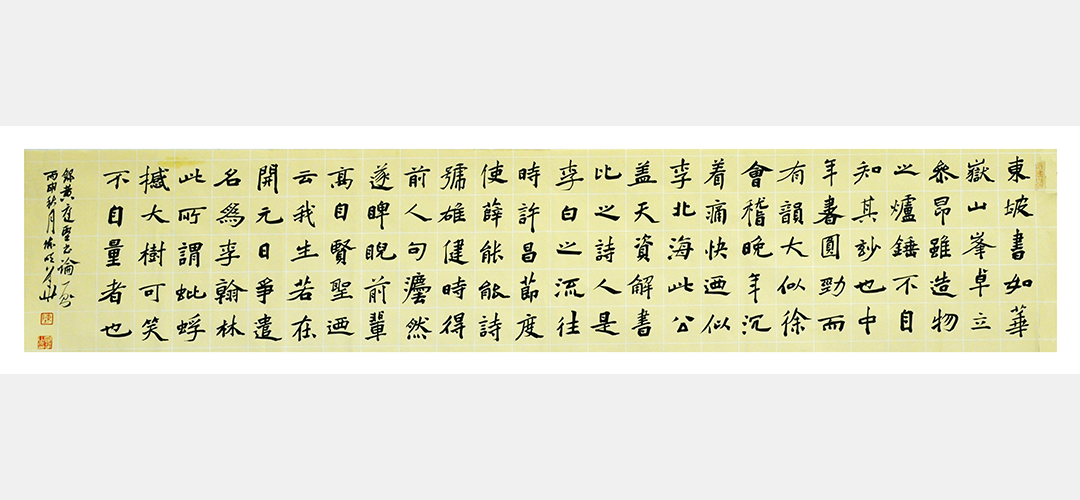 東坡書如華
嶽山峯卓立
參昴雖造物
之爐錘不自
知其妙也中
年書圓勁而
有韻大似徐
會稽晚年沉
着痛快迺似
李北海此公
盖天資解書
比之詩人是
李白之流往
時許昌節度
使薛能能詩
號雄健時得
前人句灋然
遂睥睨前輩
高自賢聖迺
云我生若在
開元日爭遣
名為李翰林
此所謂蚍蜉
撼大樹可笑
不自量者也
節黃庭堅書論一則
丙申秋月